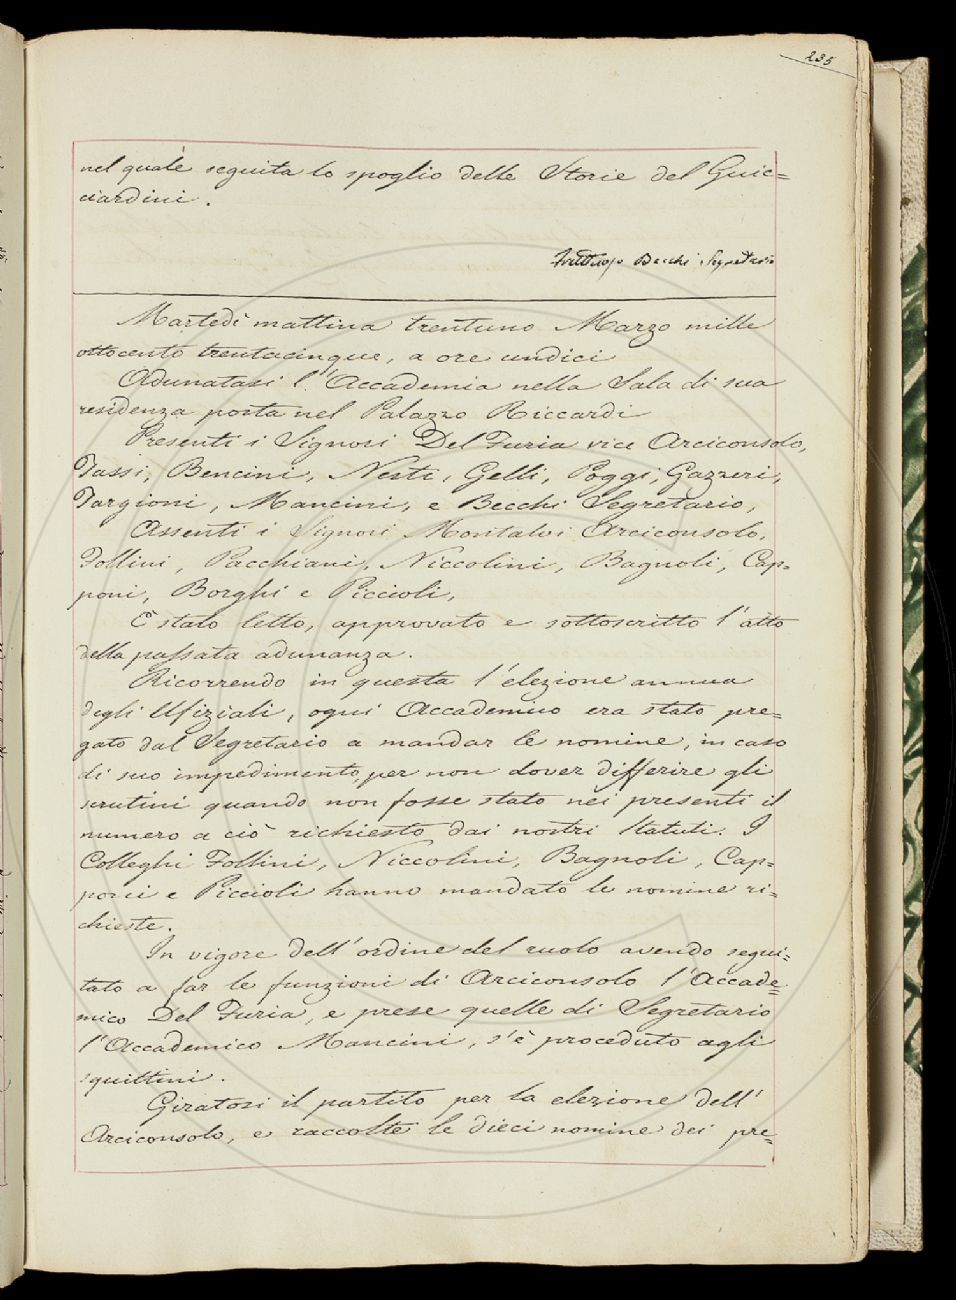 235
nel quale seguita lo spoglio delle Storie del Guic=
ciardini.
Fruttuoso Becchi Segretario
Martedì mattina trentuno Marzo mille
ottocento trentacinque, a ore undici
Adunatasi l'Accademia nella Sala di sua
residenza posta nel Palazzo Riccardi
Presenti i Signori Del Furia vice Arciconsolo,
Tassi, Bencini, Nesti, Gelli, Poggi, Gazzeri,
Targioni, Mancini, e Becchi Segretario,
Assenti i Signori Montalvi Arciconsolo,
Follini, Pacchiani, Niccolini, Bagnoli, Cap=
poni, Borghi e Piccioli,
È stato letto, approvato e sottoscritto l'atto
della passata adunanza.
Ricorrendo in questa l'elezione annua
degli Ufiziali, ogni Accademico era stato pre=
gato dal Segretario a mandar le nomine, in caso
di suo impedimento, per non dover differire gli
scrutini quando non fosse stato nei presenti il
numero a ciò richiesto dai nostri Statuti. I
Colleghi Follini, Niccolini, Bagnoli, Cap=
poni e Piccioli hanno mandato le nomine ri=
chieste.
In vigore dell'ordine del ruolo avendo segui=
tato a far le funzioni di Arciconsolo l'Accade=
mico Del Furia, e prese quelle di Segretario
l'Accademico Mancini, s'è proceduto agli
squittini.
Giratosi il partito per la elezione dell'
Arciconsolo, e raccolte le dieci nomine dei pre=